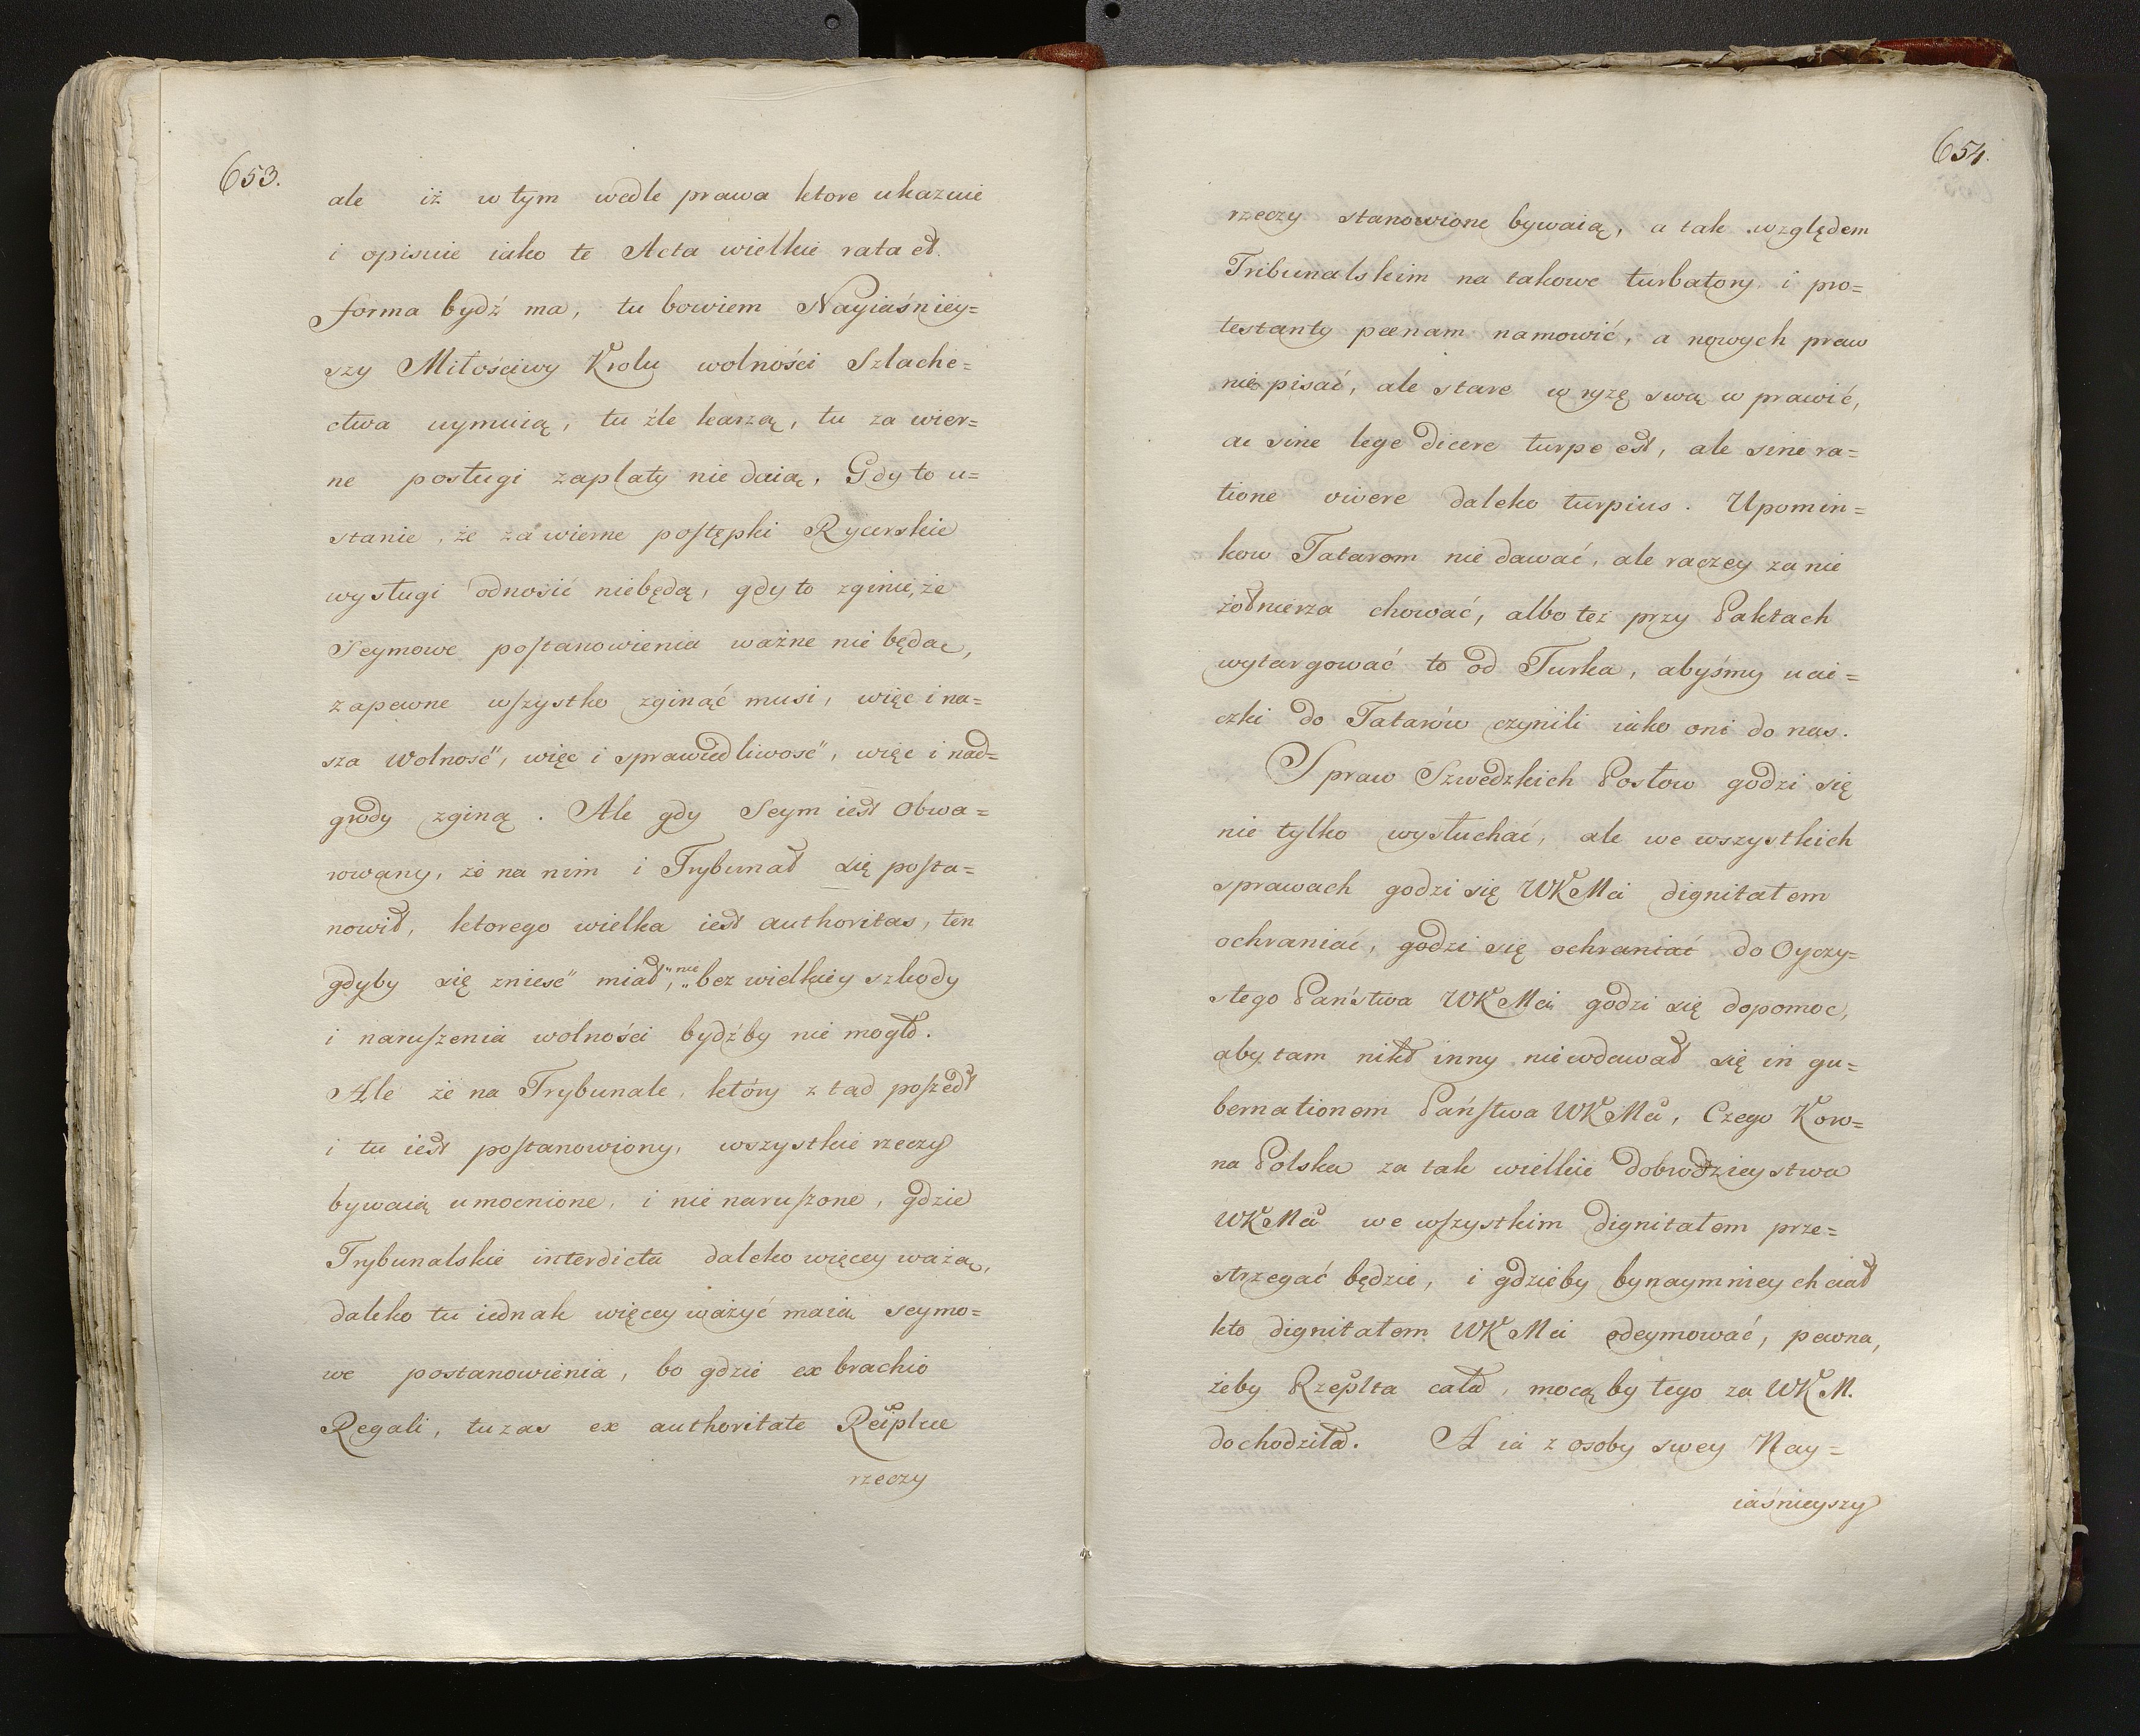 653.
ale iż w tym wedle prawa ktore ukazuie
i opisuie iako te Acta wielkie rata et
forma bydź ma, tu bowiem Nayiaśniey=
szy Miłościwy Krolu wolności Szlache=
ctwa uymuią, tu źle karzą, tu za wier=
ne posługi zapłaty nie daią, Gdy to u=
stanie, że za wierne postępki Rycerskie
wysługi odnosić niebędą, gdy to zginie, że
Seymowe postanowienia ważne nie będą,
zapewne wszystko zginąć musi, więc i na=
sza Wolność, więc i sprawiedliwość, więc i nad=
grody zginą. Ale gdy Seym iest obwa=
rowany, że na nim i Trybunał się posta=
nowił, ktorego wielka iest authoritas, ten
gdyby się znieść miał, nie bez wielkiey szkody
i naruszenia wolności bydźby nie mogło.
Ale że na Trybunale, który z tąd poszedł
i tu iest postanowiony, wszystkie rzeczy
bywaią umocnione, i nie naruszone, gdzie
Trybunalskie interdicta daleko więcey ważą,
daleko tu iednak więcey ważyć maią seymo=
we postanowienia, bo gdzie ex brachio
Regali, tu zas ex authoritate Reiplcæ
rzeczy
654.
rzeczy stanowione bywaią, a tak względem
Tribunalskim na takowe turbatory i pro=
testanty pœnam namowić, a nowych praw
nie pisać, ale stare w ryzę swą w prawić,
ac sine lege dicere turpe est, ale sine ra=
tione vivere daleko turpius. Upomin=
kow Tatarom nie dawać, ale raczey za nie
żołnierza chować, albo też przy Paktach
wytargować to od Turka, abyśmy uci=
czki do Tatarów czynili iako oni do nas.
Spraw Szwedzkich Posłow godzi się
nie tylko wysłuchać, ale we wszystkich
sprawach godzi się WKMci dignitatem
ochraniać, godzi się ochraniać do Oyczy=
stego Państwa WKMci godzi się dopomoc,
aby tam nikt inny niewdawał się in gu=
bernationem Państwa WKMci, Czego Koro=
na Polska za tak wielkie dobrodzieystwa
WKMci we wszystkim dignitatem prze=
strzegać będzie, i gdzieby bynaymniey chciał
kto dignitatem WKMci odeymować, pewna,
żeby Rzeplta cała, mocą by tego za WKM.
dochodziła. A ia z osoby swey Nay=
iaśnieyszy